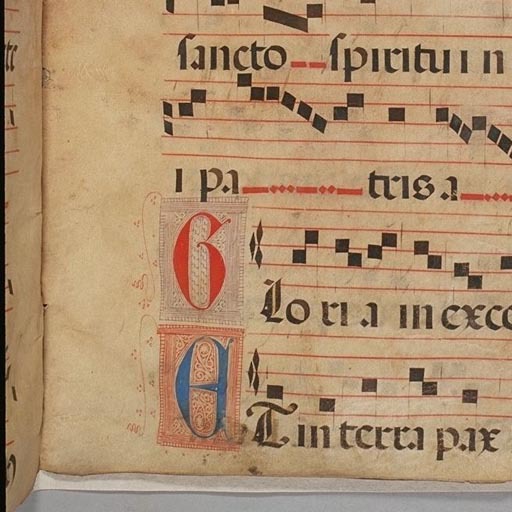 sancto spiritu i n
i pa tris a
G Lo ri a in exce
E T in terra pax